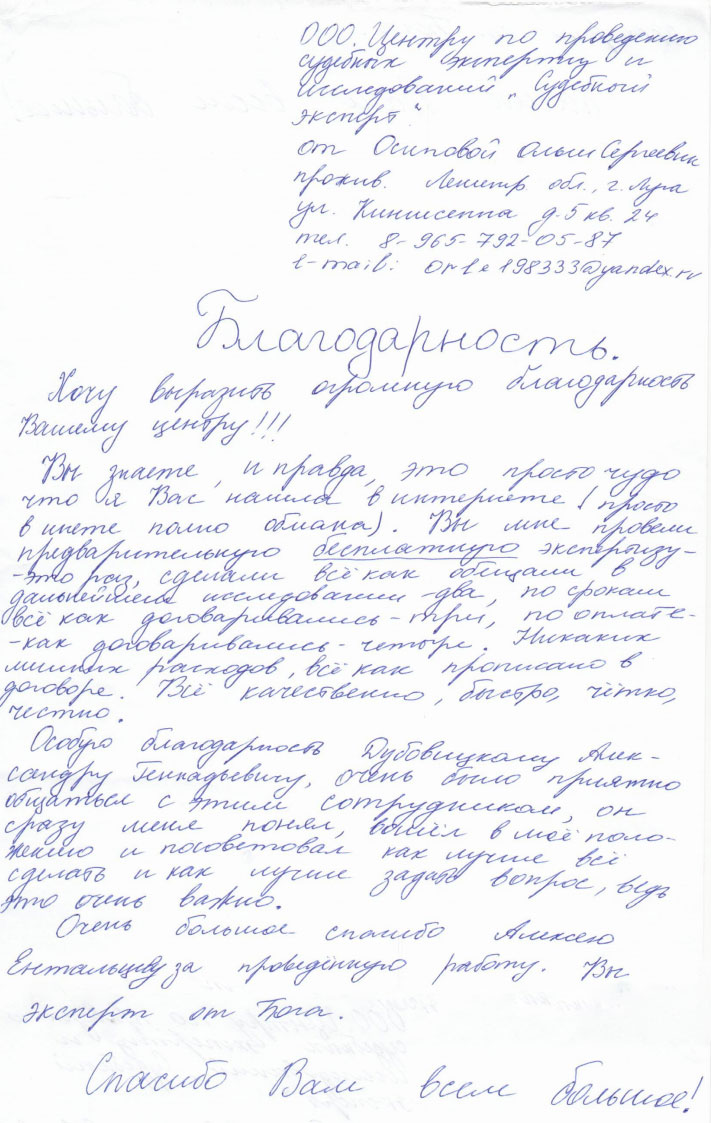 ООО. Центру по проведению
судебных экспертиз и
исследований „Судебный
эксперт“
от Осиповой Ольги Сергеевны
прожив. Ленингр обл., г. Луга
ул. Кингисеппа д-5 кв. 24
тел. 8-965-792-05-87
e-mail: 198333@yandex.ru
Благодарность.
Хочу выразить огромную благодарность
Вашему центру!!!
Вы знаете, и правда, это просто чудо
что я Вас нашла в интернете (просто
в инете полно обмана). Вы мне провели
предварительную бесплатную экспертизу-
-это раз, сделали всё как обещали в
дальнейшем исследовании -два, по срокам
всё как договаривались-три, по оплате-
-как договаривались-четыре. Никаких
лишних расходов, всё как прописано в
договоре. Всё качественно, быстро, чётко,
честно.
Особую благодарность Дубовицкому Алек-
сандру Геннадьевичу, очень было приятно
общаться с этим сотрудником, он
сразу меня понял, вошёл в моё поло-
жение и посоветовал как лучше всё
сделать и как лучше задать вопрос, ведь
это очень важно.
Очень большое спасибо Алексею
Ентальцеву за проведённую работу. Вы
эксперт от Бога.
Спасибо Вам всем большое!